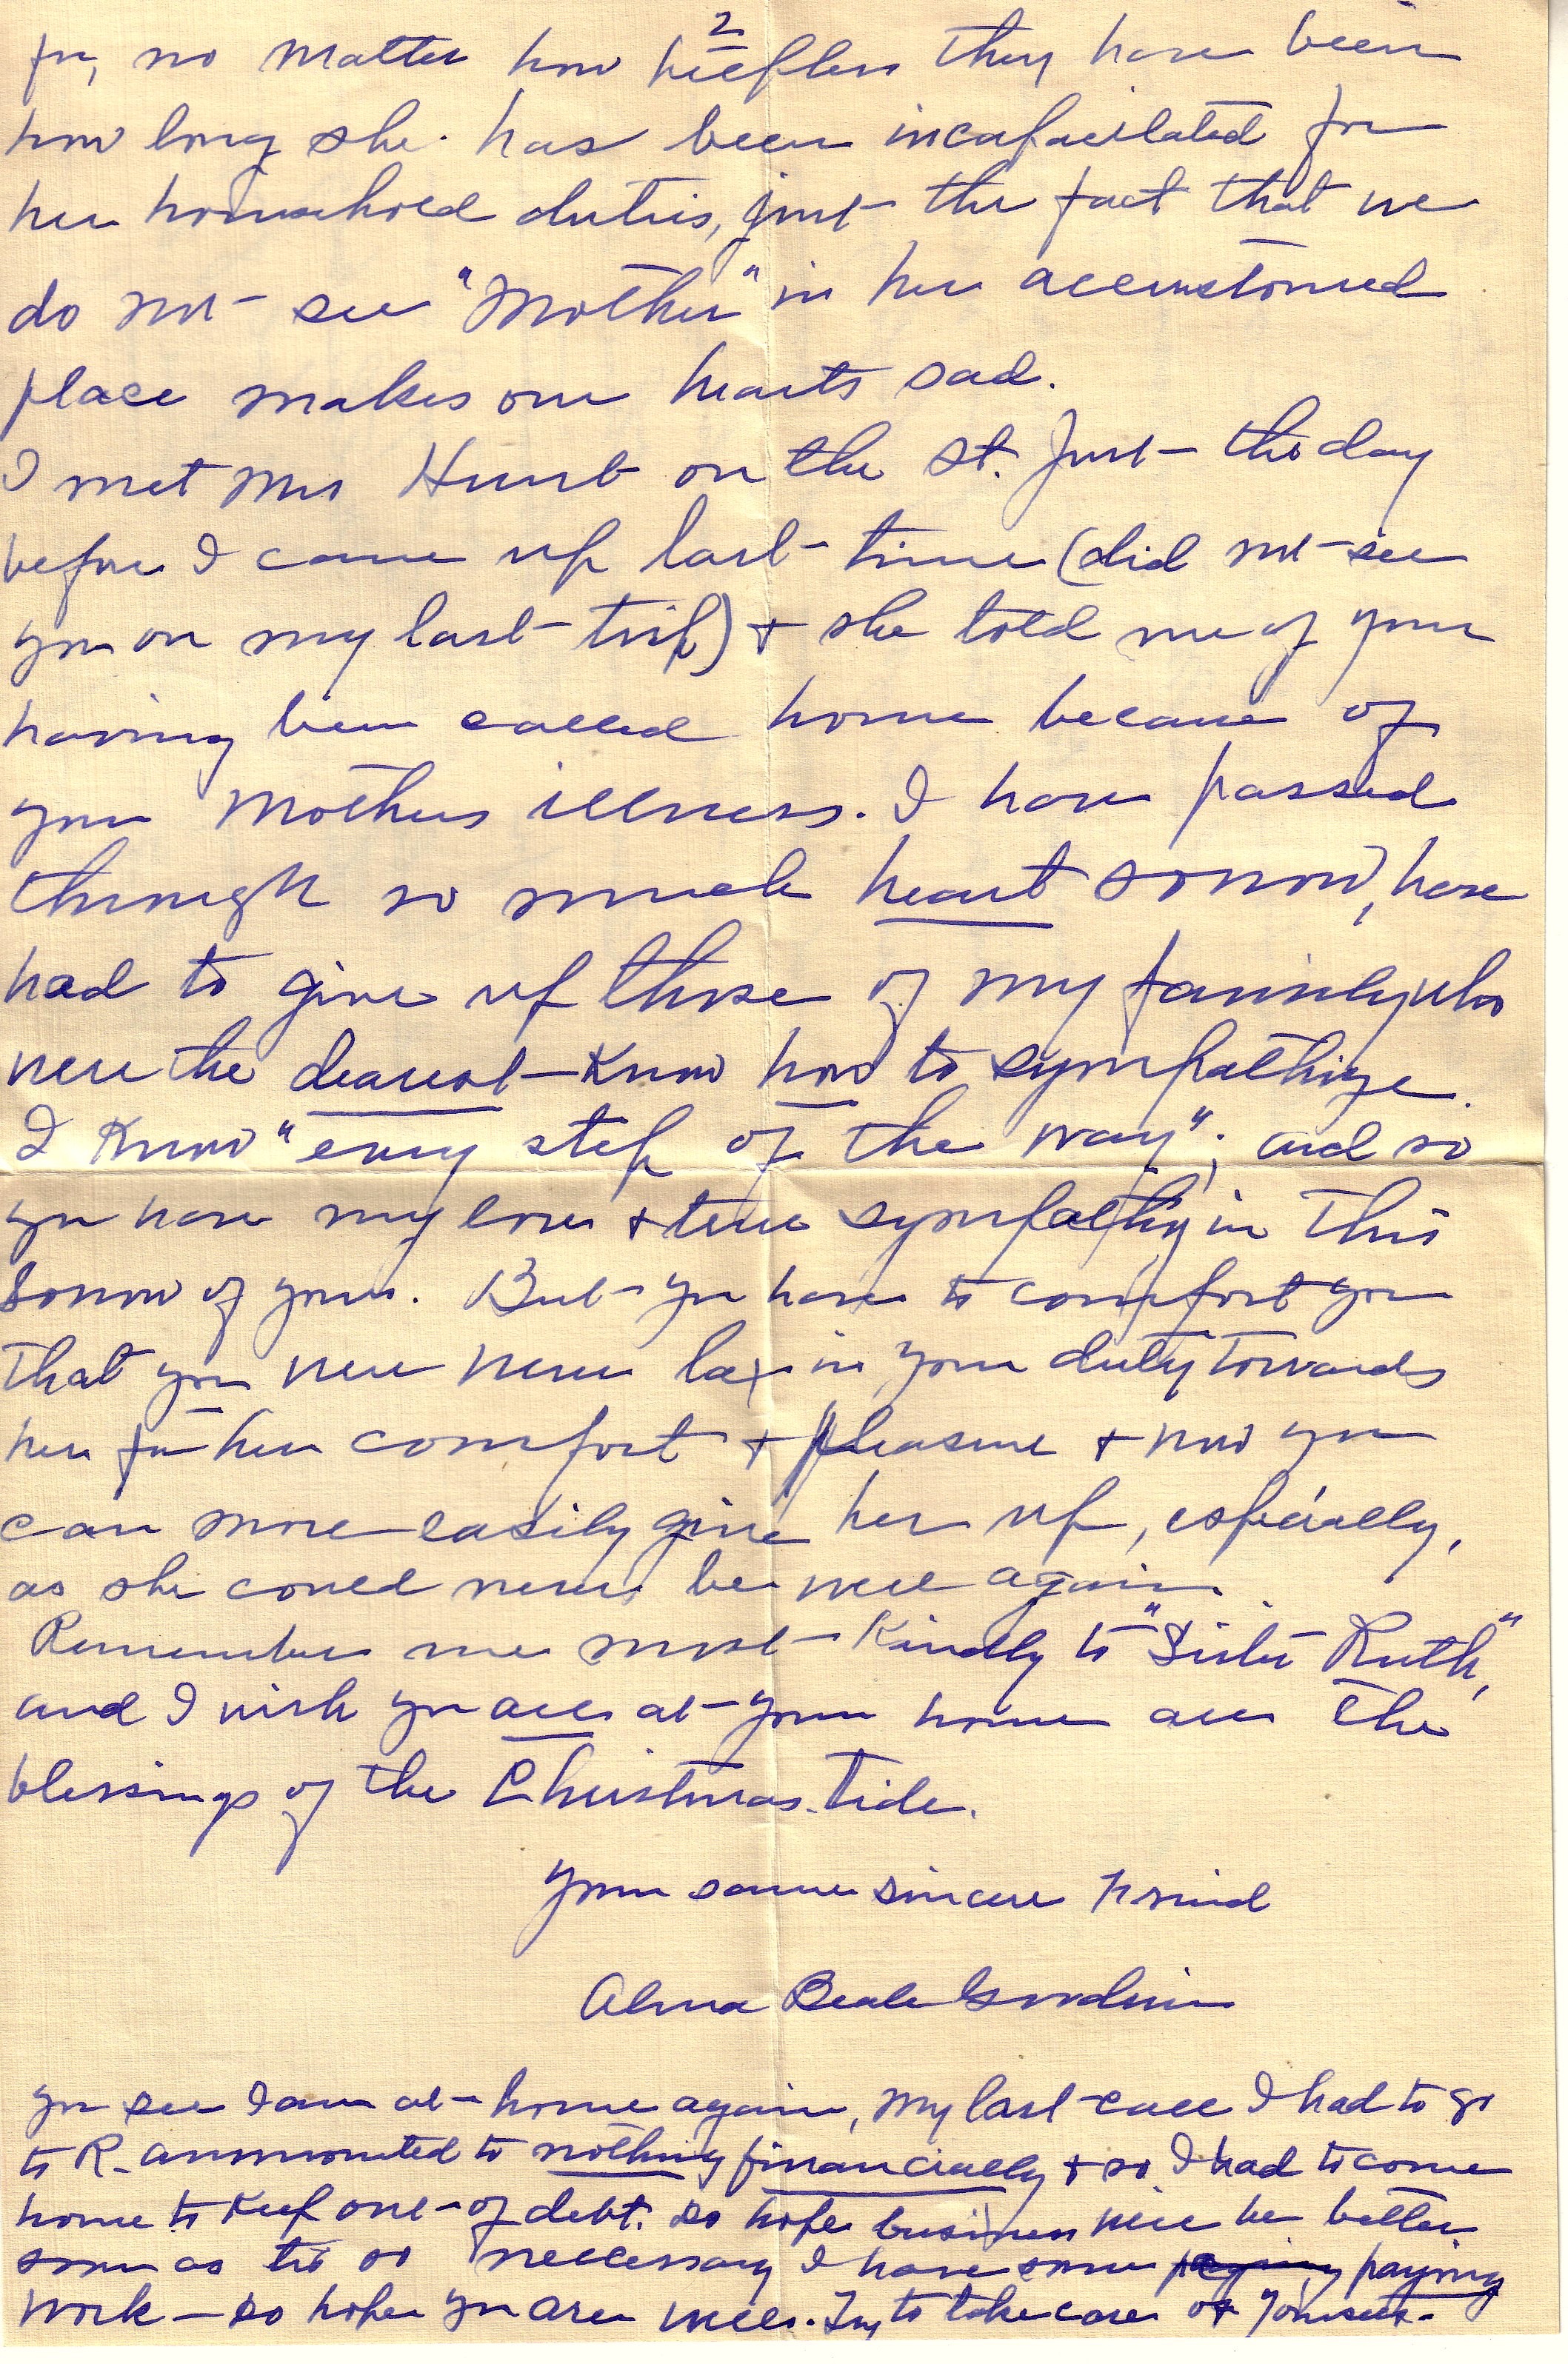 2
for, no matter how helpless they have been
how long she has been incapacitated for
her household duties, just the fact that we
do not see "Mother" in her accustomed
place makes our hearts sad.
I met Mrs Hunt on the St. Just the day
before I came up last time (did not see
you on my last trip) + she told me of your
having been called home because of
your Mothers illness. I have passed
through so much heart sorrow, have
had to give up those of my family who
were the dearest - Know how to sympathize.
I Know "every step of the way"; and so
you have my love + true sympathy in this
Sorrow of yours. But you have to comfort you
that you were never lax in your duty towards
her for her comfort + pleasure + now you
can more easily give her up, especially,
as she could never be well again.
Remember me most Kindly to "Sister Ruth,"
and I wish you all at your home all the
blessings of the Christmas-tide.
Your same sincere Friend
Alma Beale Goodwin
You see I am at home again, My last case I had to go
to R. ammounted to nothing financially + so I had to come
home to Keep out of debt. So hope business will be better
soon as tis so neccessary I have some paying paying
work - so hope you are well. Try to take care of yourself.